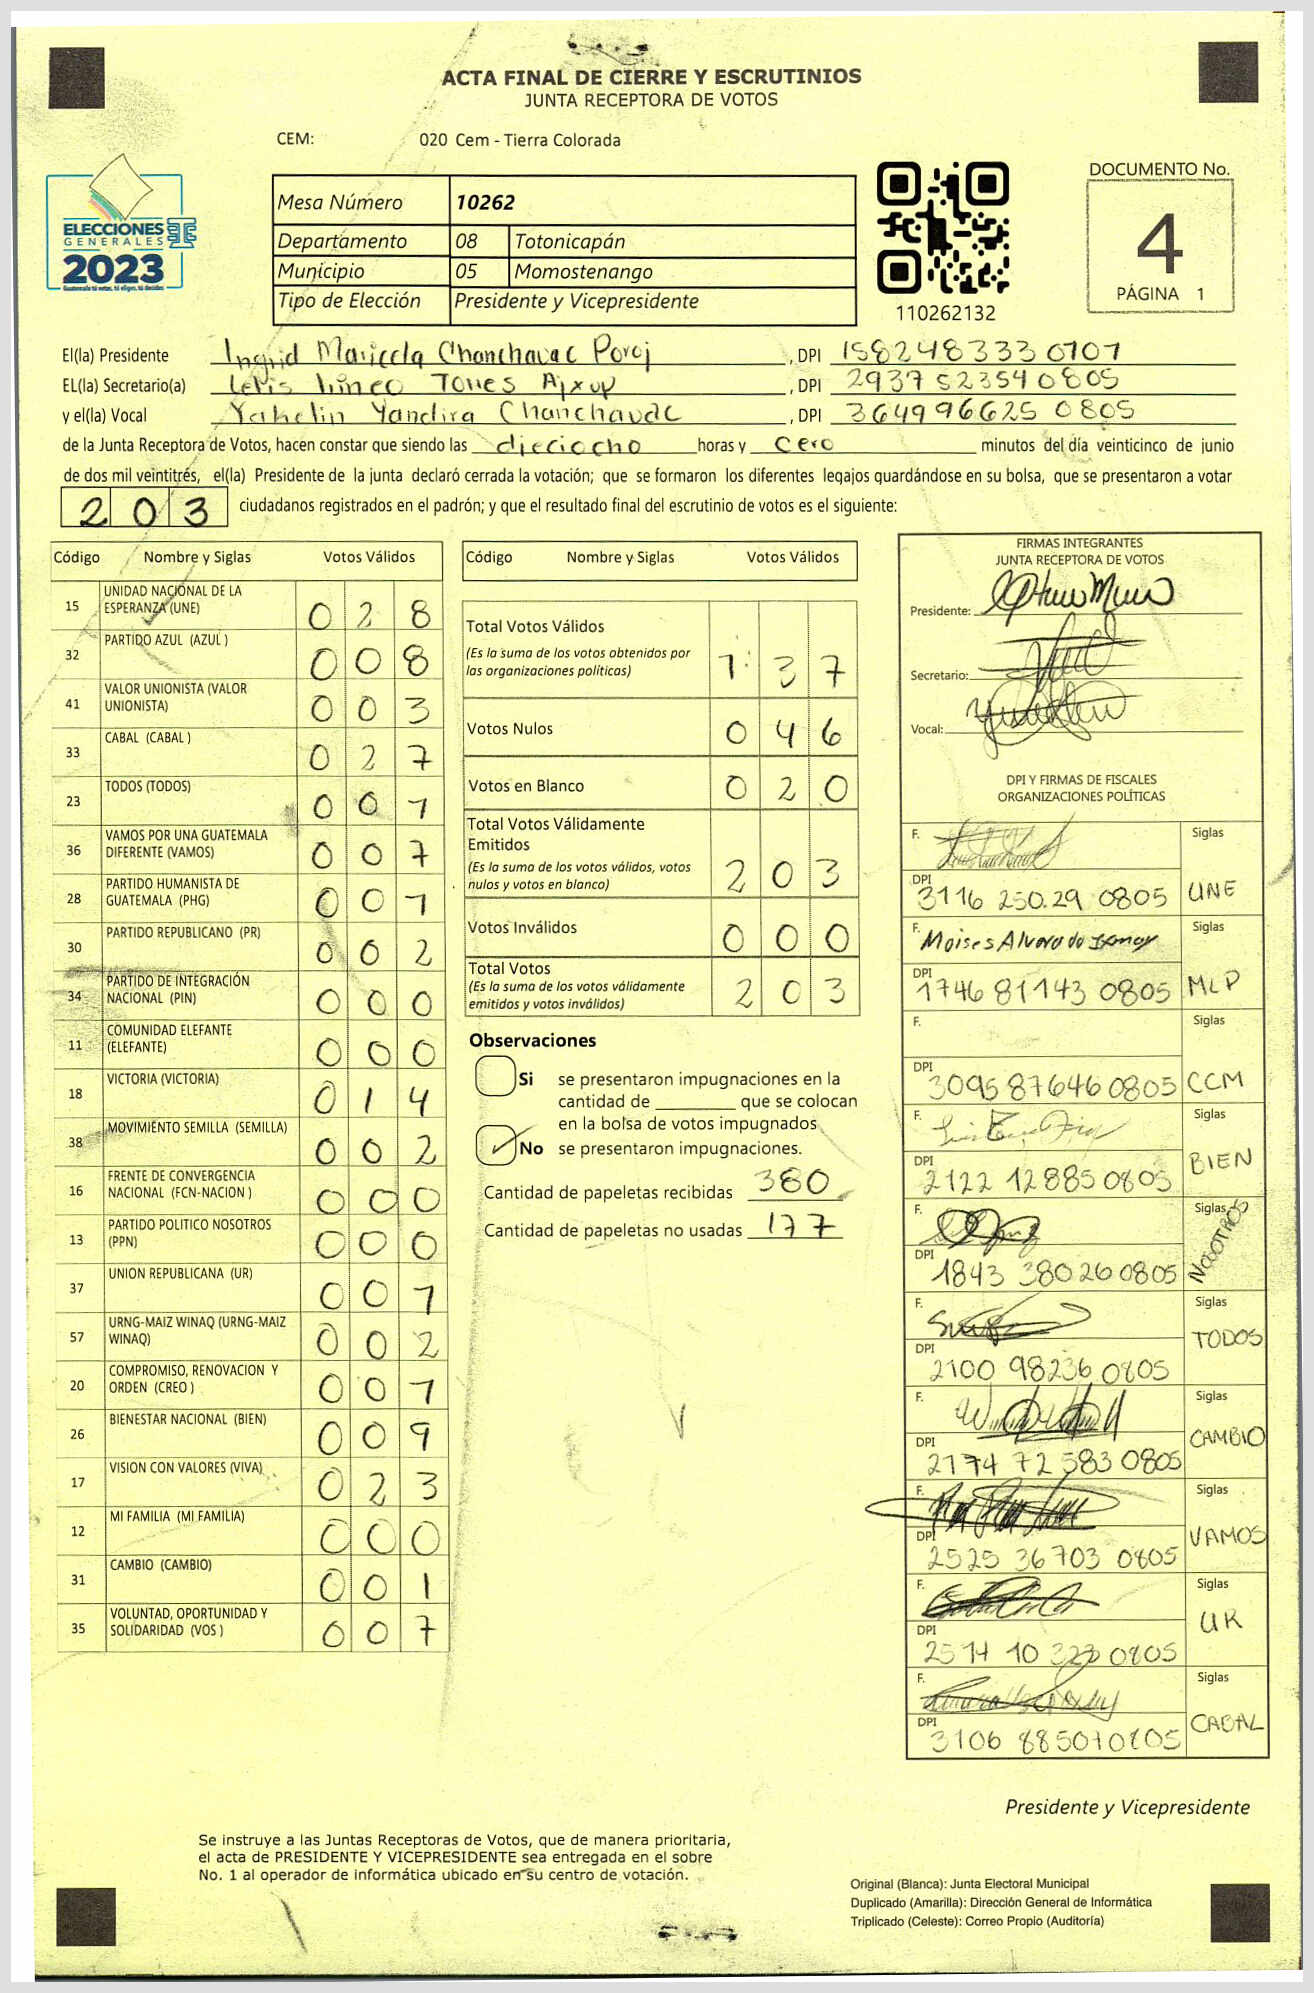 ACTA FINAL DE CIERRE Y ESCRUTINIOS
JUNTA RECEPTORA DE VOTOS
CEM: 020 Cem - Tierra Colorada
ELECCIONES
GENERALES
2023
Guatemala tú votas, tú eliges, tú decides
Mesa Número 10262
Departamento 08 Totonicapán
Municipio 05 Momostenango
Tipo de Elección Presidente y Vicepresidente
110262132
DOCUMENTO No.
4
PÁGINA 1
El(la) Presidente Ingrid Maricela Chanchavac Poroj, DPI 1582483330707
EL(la) Secretario(a) Torres Ajxup, DPI 2937523540805
y el(la) Vocal Yakelin Yandira Chanchavac, DPI 3649966250805
de la Junta Receptora de Votos, hacen constar que siendo las dieciocho horas y cero minutos del día veinticinco de junio
de dos mil veintitrés, el(la) Presidente de la junta declaró cerrada la votación; que se formaron los diferentes legajos guardándose en su bolsa, que se presentaron a votar
203 ciudadanos registrados en el padrón; y que el resultado final del escrutinio de votos es el siguiente:
Código Nombre y Siglas Votos Válidos
15 UNIDAD NACIONAL DE LA ESPERANZA (UNE) 028
32 PARTIDO AZUL (AZUL ) 008
41 VALOR UNIONISTA (VALOR UNIONISTA) 003
33 CABAL (CABAL ) 027
23 TODOS (TODOS) 001
36 VAMOS POR UNA GUATEMALA DIFERENTE (VAMOS) 007
28 PARTIDO HUMANISTA DE GUATEMALA (PHG) 001
30 PARTIDO REPUBLICANO (PR) 002
34 PARTIDO DE INTEGRACIÓN NACIONAL (PIN) 000
11 COMUNIDAD ELEFANTE (ELEFANTE) 000
18 VICTORIA (VICTORIA) 014
38 MOVIMIENTO SEMILLA (SEMILLA) 002
16 FRENTE DE CONVERGENCIA NACIONAL (FCN-NACION ) 000
13 PARTIDO POLITICO NOSOTROS (PPN) 000
37 UNION REPUBLICANA (UR) 001
57 URNG-MAIZ WINAQ (URNG-MAIZ WINAQ) 002
20 COMPROMISO, RENOVACION Y ORDEN (CREO ) 001
26 BIENESTAR NACIONAL (BIEN) 009
17 VISION CON VALORES (VIVA) 023
12 MI FAMILIA (MI FAMILIA) 000
31 CAMBIO (CAMBIO) 001
35 VOLUNTAD, OPORTUNIDAD Y SOLIDARIDAD (VOS ) 007
Código Nombre y Siglas Votos Válidos
Total Votos Válidos 137
(Es la suma de los votos obtenidos por
las organizaciones políticas)
Votos Nulos 046
Votos en Blanco 020
Total Votos Válidamente
Emitidos 203
(Es la suma de los votos válidos, votos
nulos y votos en blanco)
Votos Inválidos 000
Total Votos 203
(Es la suma de los votos válidamente
emitidos y votos inválidos)
Observaciones
Si se presentaron impugnaciones en la
cantidad de ________ que se colocan
en la bolsa de votos impugnados
No se presentaron impugnaciones.
Cantidad de papeletas recibidas 380
Cantidad de papeletas no usadas 177
FIRMAS INTEGRANTES
JUNTA RECEPTORA DE VOTOS
Presidente:
Secretario:
Vocal:
DPI Y FIRMAS DE FISCALES
ORGANIZACIONES POLÍTICAS
F. Siglas
DPI 3116 250.29 0805 UNE
F. Moises Alvarado Siglas
DPI 1746 81143 0805 MLP
F. Siglas
DPI 3095876460805 CCM
F. Siglas
DPI 2122 12885 0805 BIEN
F. Siglas
DPI 1843 38026 0805 NOSOTROS
F. Siglas
DPI 2100 98236 0805 TODOS
F. Siglas
DPI 2174 72583 0805 CAMBIO
F. Siglas
DPI 2525 36703 0805 VAMOS
F. Siglas
DPI 2574 10 0805 UR
F. Siglas
DPI 3106 88507 0805 CABAL
Presidente y Vicepresidente
Se instruye a las Juntas Receptoras de Votos, que de manera prioritaria,
el acta de PRESIDENTE Y VICEPRESIDENTE sea entregada en el sobre
No. 1 al operador de informática ubicado en su centro de votación.
Original (Blanca): Junta Electoral Municipal
Duplicado (Amarilla): Dirección General de Informática
Triplicado (Celeste): Correo Propio (Auditoría)